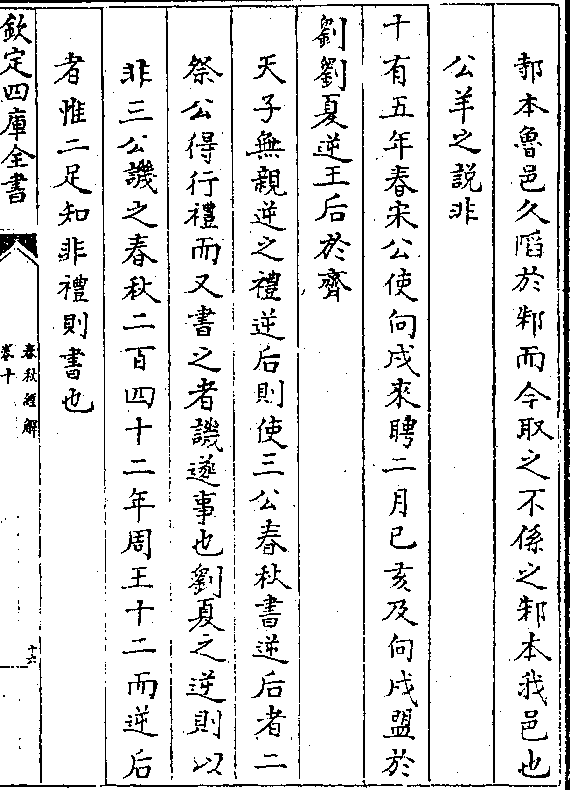 邿本魯邑久䧟於邾而今取之不係之邾本我邑也
公羊之説非
十有五年春宋公使向戌來聘二月已亥及向戌盟於
劉劉夏逆王后於齊
天子無親逆之禮逆后則使三公春秋書逆后者二
祭公得行禮而又書之者譏遂事也劉夏之逆則以
非三公譏之春秋二百四十二年周王十二而逆后
者惟二足知非禮則書也
欽定四庫全書
春秋經解
卷十
十六